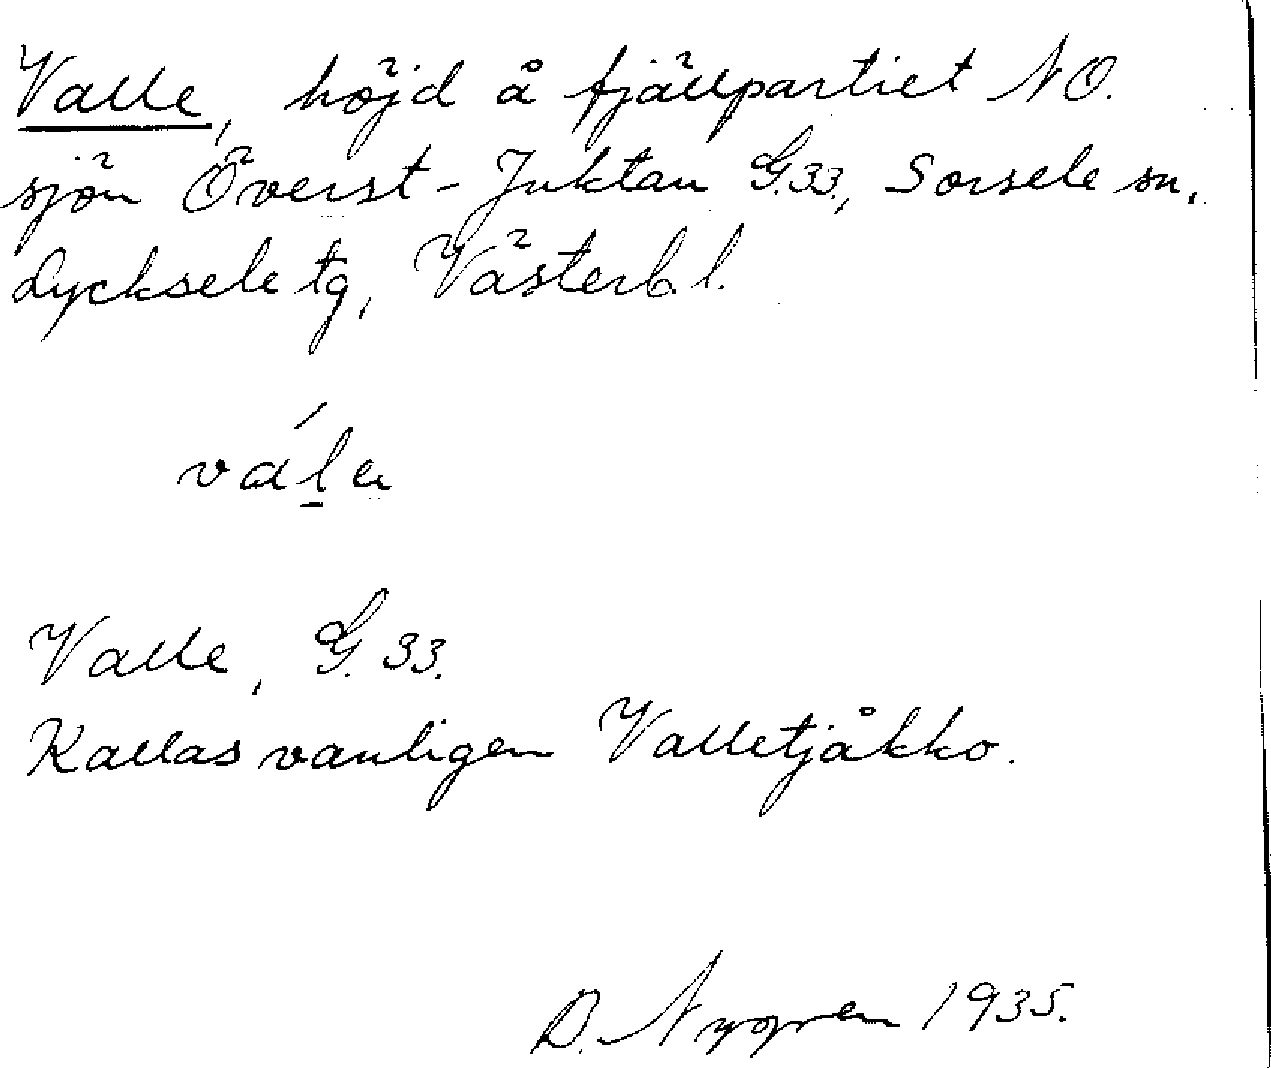 Valle, höjd å fjällpartiet NO.
sjön Överst-Juktan G.33., Sorsele sn.
Lycksele tg, Västerb. l.
váḻa
Valle, G. 33.
Kallas vanligen Valletjåkko.
D. Nygren 1935.